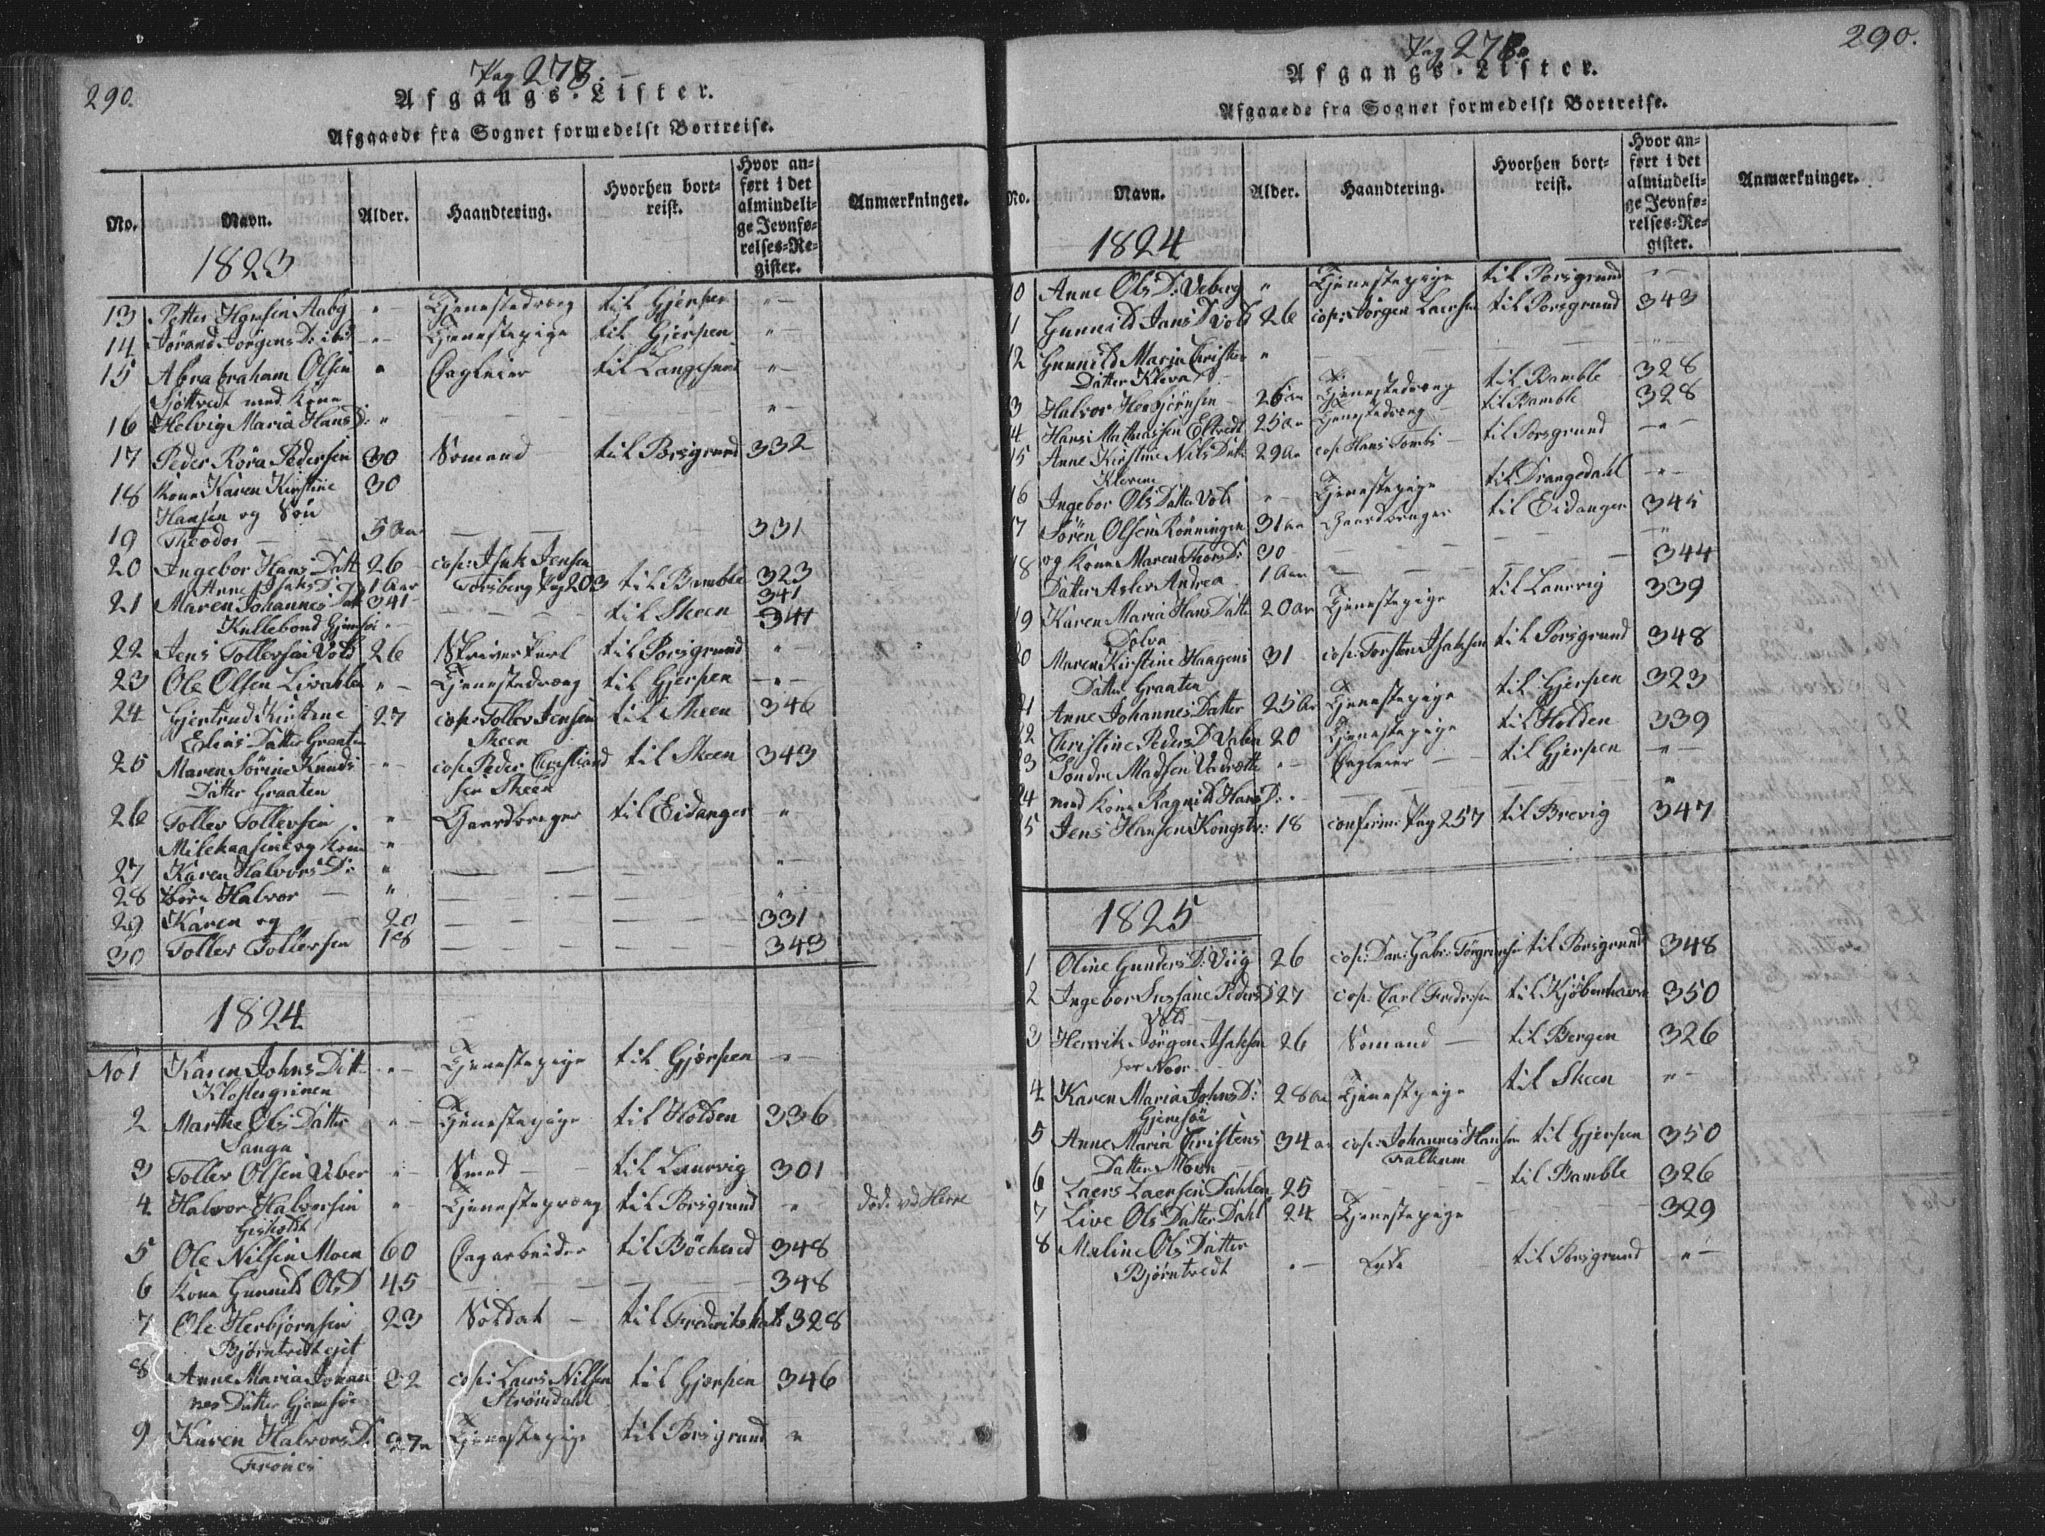 290.
Pag 278.
Afgangs-Lister.
Afgaaede fra Sognet formedelst Bortreise.
No. Navn. Alder. Haandtering. Hvorhen bortreist. Hvor anført i det almindelige Jevnførelses-Register. Anmærkninger.
1823
13 Petter Hansen Aaby " Tjenestedreng til Gjerpen "
14 Jørand Jørgens D: ibd " Tjenestepige til Gjerpen "
15 Abrabraham Olsen " Dagleier til Langesund "
Sjøttvedt med Kone
16 Helvig Maria Hans D: " "
17 Peder Røra Pedersen 30 Sømand til Porsgrund 332
18 Kone Karen Kirstine 30
Hansen og Søn
19 Theodor 5 Aar 331
20 Ingebor Hans Datt 26 cop: Isak Jensen
Anne Isaks D: 1 Aar Forsberg Pag 203 til Bamble 323
21 Maren Johannes Dat 341 til Skeen 341
Kullebond Gjemsøe 341
22 Jens Tollevsen Vold 26 Skriverkarl til Porsgrund "
23 Ole Olsen Livahlen " Tjenestedreng til Gjerpen "
24 Gjertrud Kirstine 27 cop: Tollev Jensen til Skeen 346
Elias Datter Graaten Skeen
25 Maren Sørine Knuds " cop: Peder Christiand til Skeen 343
Datter Graaten sen Skeen
26 Tollev Tollevsen " Gaardbruger til Eidanger "
Milekaasene og Kone "
27 Karen Halvors D: " "
28 Børn Halvor " "
29 Karen og 20 331
30 Tollev Tollevsen 18 343
1824
No 1 Karen Johns Dtt " Tjenestepige til Gjerpen "
Klostergrinen
2 Marthe Ols Datter " Tjenestepige til Holden 336
Sanga
3 Tollev Olsen Uber " Smed til Laurvig 301
4 Halvor Halvorsen " Tjenestedreng til Porsgrund " Død ved Herre
Gisholt
5 Ole Nilsen Moen 60 Dagarbeider til Bøcherød 348
6 Kone Gunnild Ols D 45 348
7 Ole Herbjørnsen 23 Soldat til Frederikshald 328
Bjørntvedt ejet
8 Anne Maria Johan 22 cop: Laers Nilsen til Gjerpen 346
nes Datter Gjemsøe Strømdahl
9 Karen Halvors D: 27 Tjenestepige til Porsgrund "
Frones
290.
Pag 278.
Afgangs-Lister.
Afgaaede fra Sognet formedelst Bortreise.
No. Navn. Alder. Haandtering. Hvorhen bortreist. Hvor anført i det almindelige Jevnførelses-Register. Anmærkninger.
1824
10 Anne Ols D: Veberg " Tjenestepige til Porsgrund "
1 Gunnild Jans D Vold 26 cop: Jørgen Laersen til Porsgrund 343
12 Gunnild Maria Christen "
Datter Kleva
3 Halvor Herbjørnsen 26 Aar Tjenestedreng til Bamble 328
4 Hans Mathiasen Eltvedt 25 Aar Tjenestedreng til Bamble 328
15 Anne Kirstine Nils Datt 29 Aar cop: Hans Tombs til Porsgrund "
Klevene
16 Ingebor Ols Datter Vold " Tjenestepige til Drangedahl "
7 Søren Olsen Rønningen 31 Aar Gaardbruger til Eidanger 345
18 og Kone Maren Thors D: 30 "
Datter Aslev Andrea 1 Aar 344
19 Karen Maria Hans Datter 20 Aar Tjenestepige til Laurvig 339
Dølva
20 Maren Kirstine Haagens 31 cop: Torsten Isaksen til Porsgrund 348
Datter Graaten
21 Anne Johannes Datter 25 Aar Tjenestepige til Gjerpen 323
22 Christine Peders D 20 Tjenestepige til Holden 339
23 Søndre Madsen " Dagleier til Gjerpen "
24 med Kone Ragnild Hans D: " "
25 Jens Hansen Kongste: 18 confirm: Pag 257 til Brevig 347
1825
1 Oline Gunders D: Viig 26 cop: Dan: Gabr: Tørgersen til Porsgrund 348
2 Ingebor Susane Peders D 27 cop: Carl Fredrisen til Kjøbenhavn 350
Vold
3 Henrik Jørgen Isaksen 26 Sømand til Bergen 326
for Noer
4 Karen Maria Johns D: 28 Aar Tjenestepige til Skeen "
Gjemsøe
5 Anne Maria Christens 34 Aar cop: Johannes Hansen til Gjerpen 350
Datter Moen Falkum
6 Laers Laersen Dahlen 25 til Bamble 326
7 Live Ols Datter Dahl 24 Tjenestepige 329
8 Maline Ols Datter
Bjørntvedt " til Porsgrund "